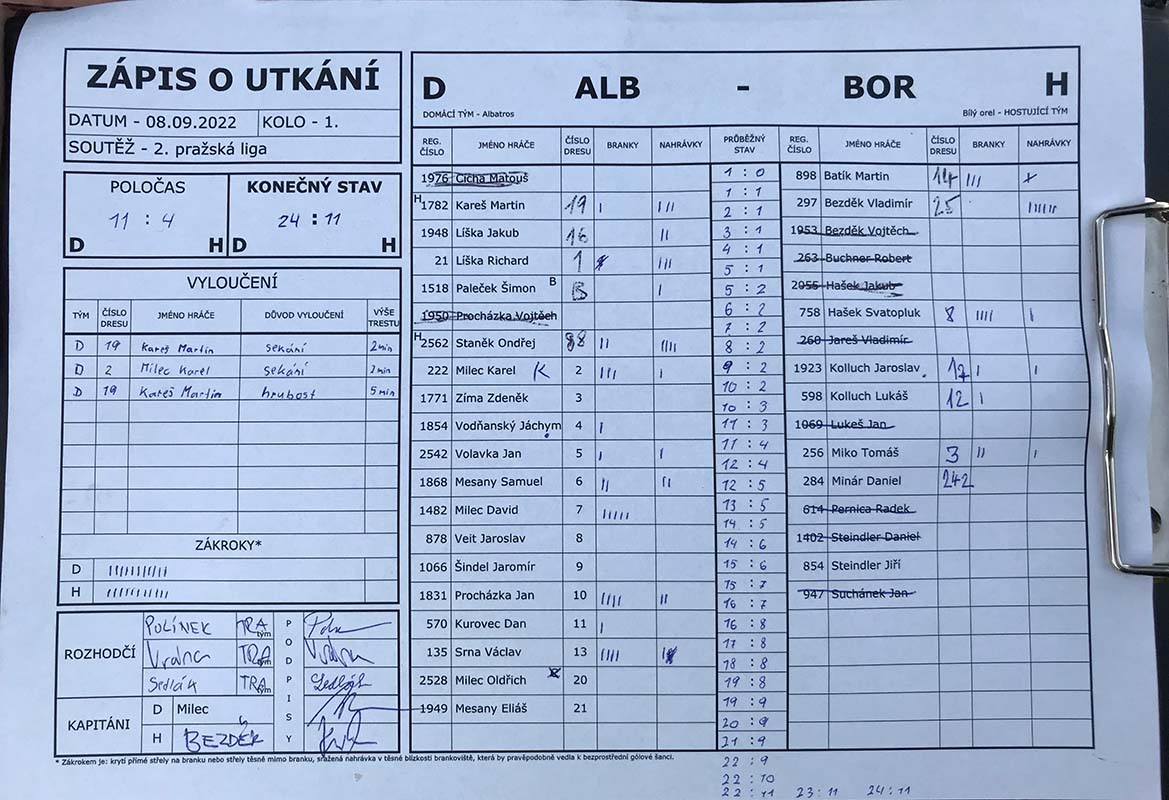 ZÁPIS O UTKÁNÍ
DATUM - 08.09.2022 KOLO - 1.
SOUTĚŽ - 2. pražská liga
POLOČAS KONEČNÝ STAV
11 : 4 24 : 11
D H D H
VYLOUČENÍ
TÝM ČÍSLO DRESU JMÉNO HRÁČE DŮVOD VYLOUČENÍ VÝŠE TRESTU
D 19 Kareš Martin sekání 2 min
D 2 Milec Karel sekání 2 min
D 19 Kareš Martin hrubost 5 min
ZÁKROKY*
D
H
ROZHODČÍ
POLÍNEK TRA tým
Vrabna TRA tým
Sedlák TRA tým
PODPISY
KAPITÁNI
D Milec
H BEZDĚK
D ALB - BOR H
DOMÁCÍ TÝM - Albatros Bílý orel - HOSTUJÍCÍ TÝM
REG. ČÍSLO JMÉNO HRÁČE ČÍSLO DRESU BRANKY NAHRÁVKY PRŮBĚŽNÝ STAV REG. ČÍSLO JMÉNO HRÁČE ČÍSLO DRESU BRANKY NAHRÁVKY
1976 Cícha Matouš
H 1782 Kareš Martin 19 I III
1948 Líška Jakub 16 II
21 Líška Richard 1 III
1518 Paleček Šimon B I
1950 Procházka Vojtěch
H 2562 Staněk Ondřej 88 II IIII
222 Milec Karel K 2 III I
1771 Zíma Zdeněk 3
1854 Vodňanský Jáchym 4 I
2542 Volavka Jan 5 I I
1868 Mesany Samuel 6 II II
1482 Milec David 7 IIIII
878 Veit Jaroslav 8
1066 Šindel Jaromír 9
1831 Procházka Jan 10 IIII II
570 Kurovec Dan 11 I
135 Srna Václav 13 IIII
2528 Milec Oldřich 20
1949 Mesany Eliáš 21
1 : 0
1 : 1
2 : 1
3 : 1
4 : 1
5 : 1
5 : 2
6 : 2
7 : 2
8 : 2
9 : 2
10 : 2
10 : 3
11 : 3
11 : 4
12 : 4
12 : 5
13 : 5
14 : 5
14 : 6
15 : 6
15 : 7
16 : 7
16 : 8
17 : 8
18 : 8
19 : 8
19 : 9
20 : 9
21 : 9
22 : 9
22 : 10
22 : 11 23 : 11 24 : 11
898 Batík Martin 14 III
297 Bezděk Vladimír 25 IIIIII
1953 Bezděk Vojtěch
263 Buchner Robert
2055 Hašek Jakub
758 Hašek Svatopluk 8 IIII I
260 Jareš Vladimír
1923 Kolluch Jaroslav 17 I I
598 Kolluch Lukáš 12 I
1069 Lukeš Jan
256 Miko Tomáš 3 II I
284 Minár Daniel 242
614 Pernica Radek
1402 Steindler Daniel
854 Steindler Jiří
947 Suchánek Jan
* Zákrokem je: krytí přímé střely na branku nebo střely těsně mimo branku, sražená nahrávka v těsné blízkosti brankoviště, která by pravěpodobně vedla k bezprostřední gólové šanci.